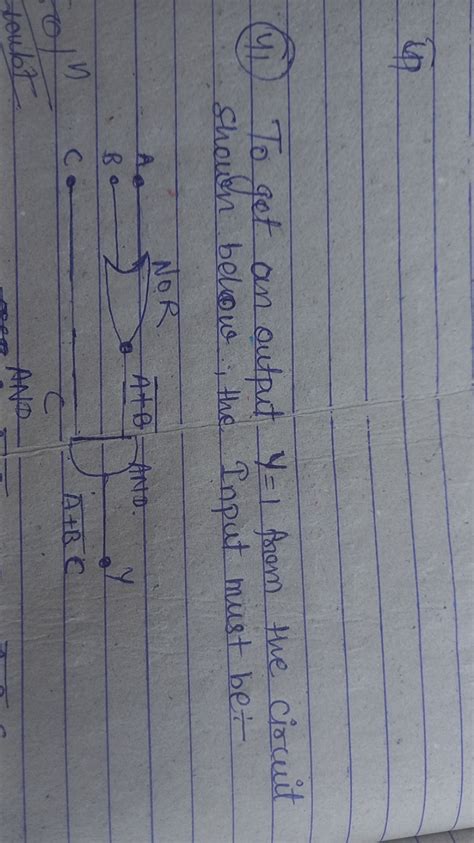 41 To get an output Y=1 from the circuit
shown below, the Input must be:-
NOR
A
B
A+B
AND.
Y
C
C
A+B C
AND
doubt